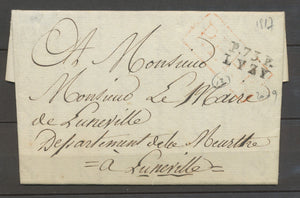 1817
P.73.P.
LYZY
A Monsieur
Monsieur Le Maire
de Luneville
Departement de la Meurthe
= à Luneville =